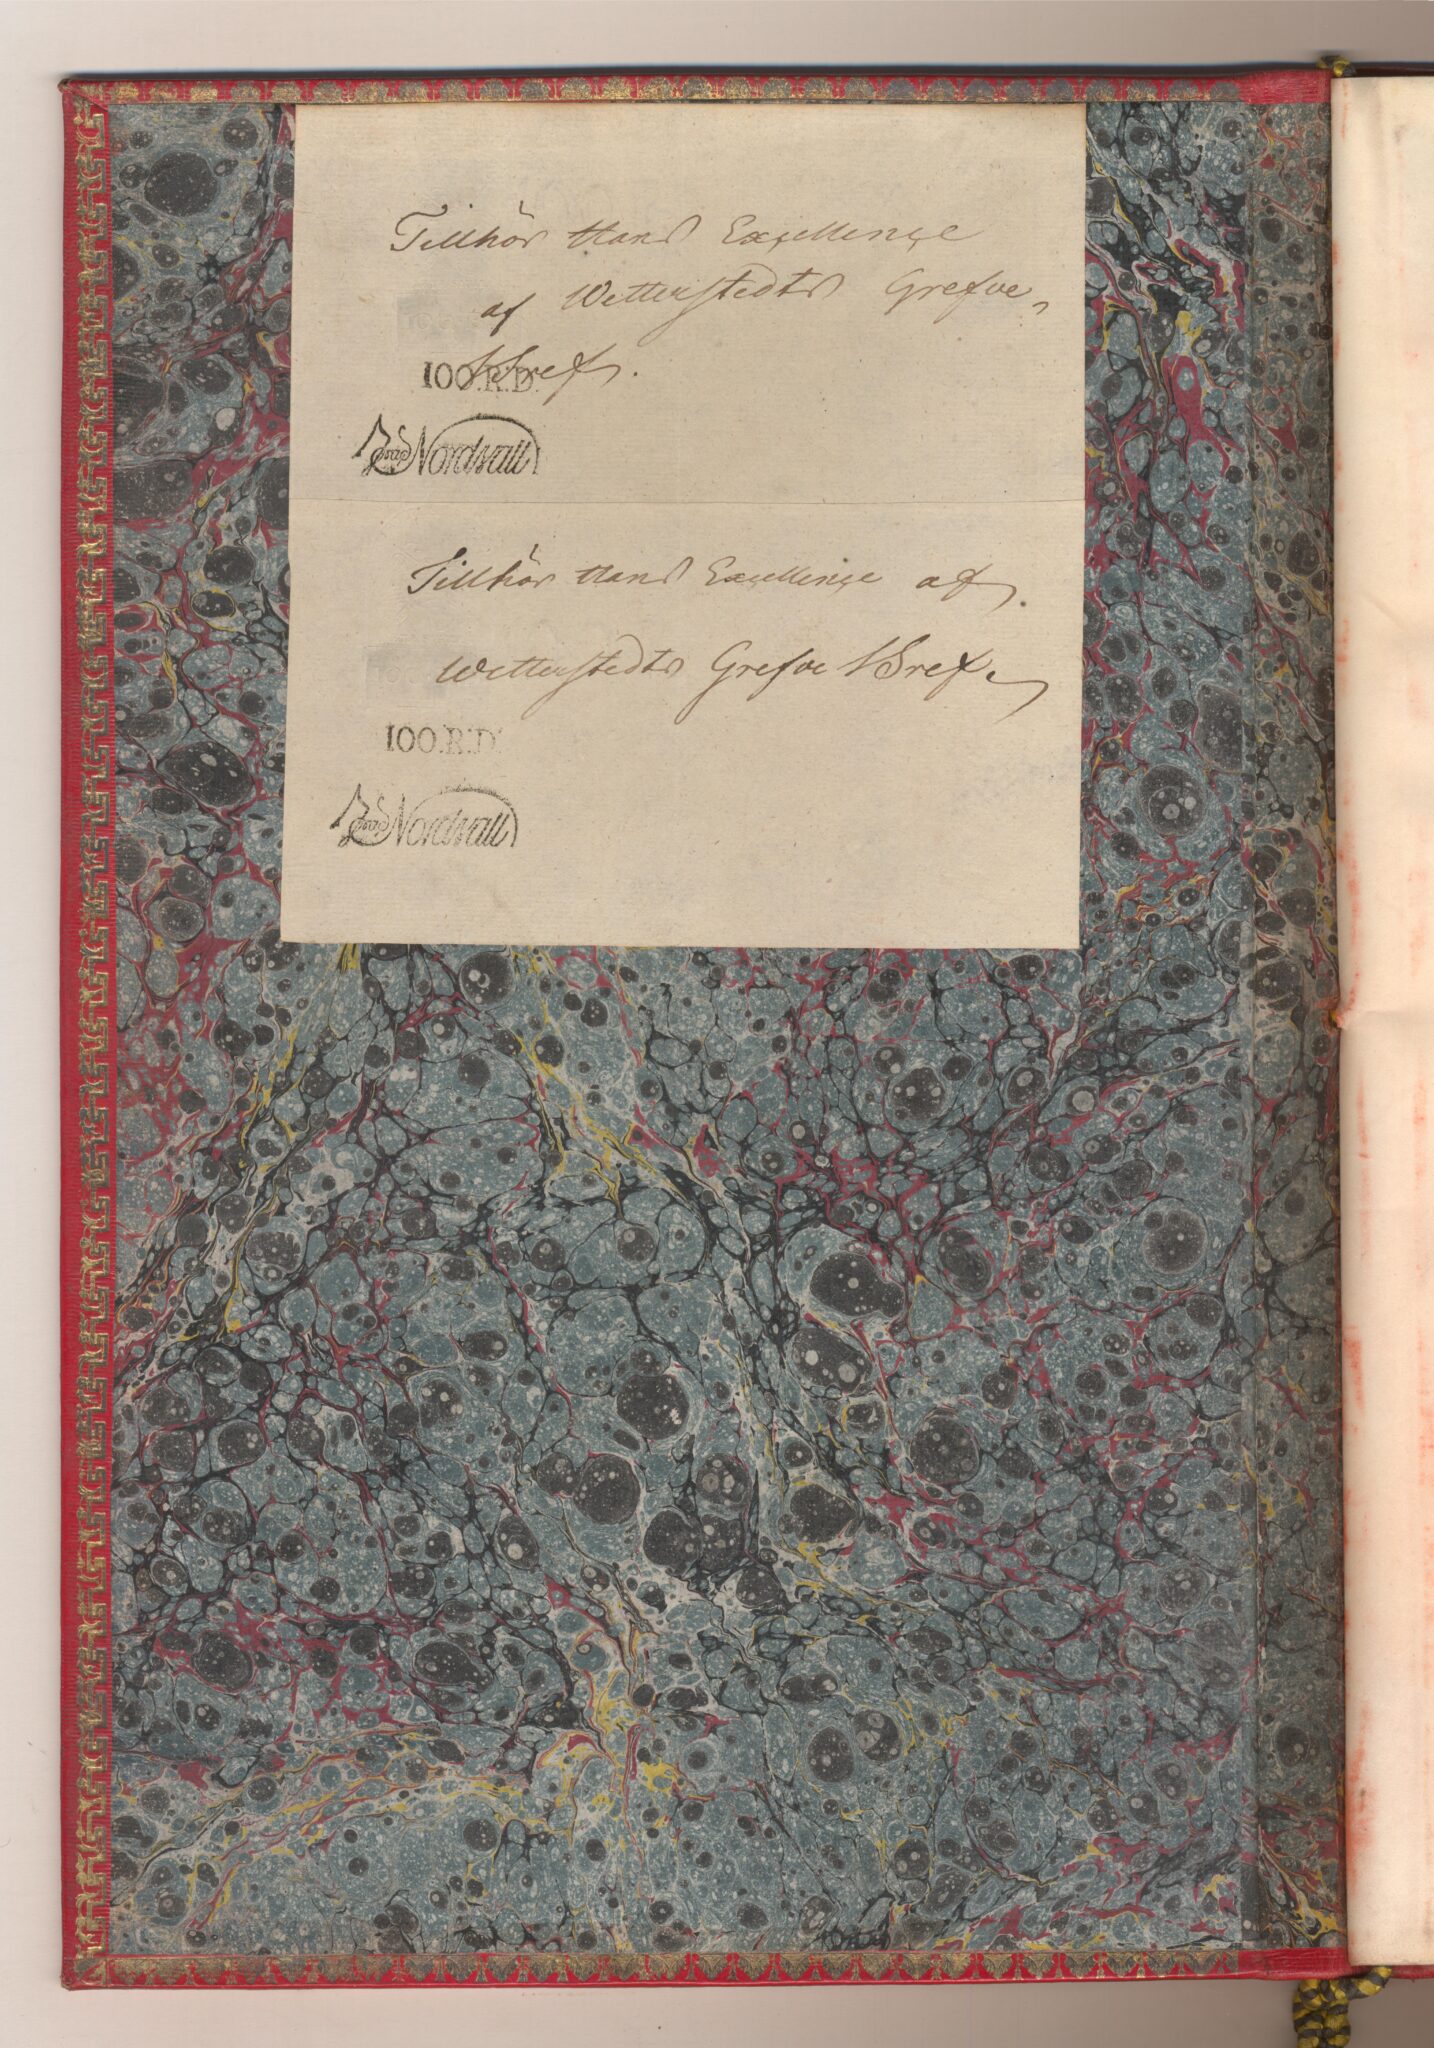 Tillhör Hans Excellence
af Wetterstedts Grefve-
Bref.
100.R:D.
Nordwall
Tillhör Hans Excellence af
Wetterstedts Grefve Bref.
100.R:D.
Nordwall